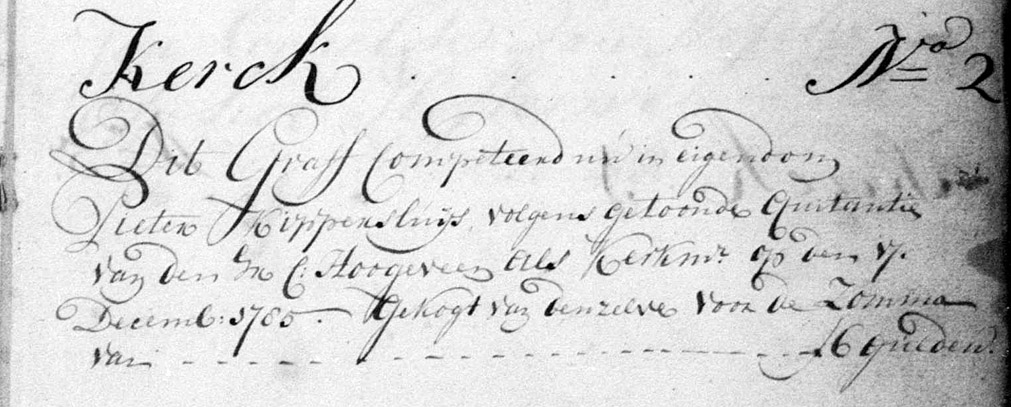 Kerck . . . . . . N.ro 2
Dit Graff Competeerd nu in eigendom
Pieter Kippersluijs, volgens getoonde Quitantie
van den hr C: Hoogeveen als Kerkmr. op den 17.
Decemb: 1785. Gekogt van denzelve voor de Zomma
van - - - - - - - - - - - - - 16 gulden.